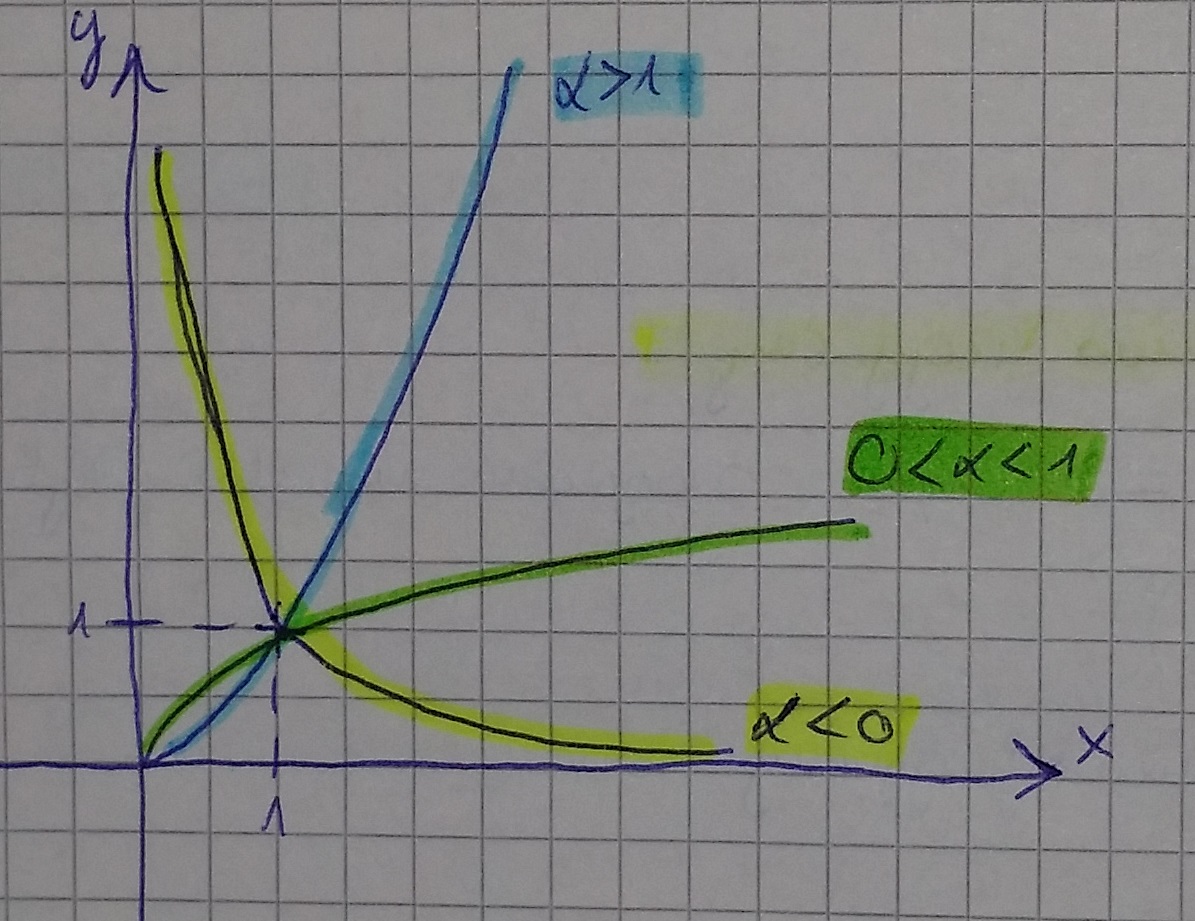 y
α>1
0<α<1
1
α<0
x
1